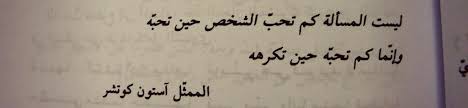 ليست المسألة كم تحبّ الشخص حين تحبّه
وإنّما كم تحبّه حين تكرهه
الممثّل آستون كوتشر